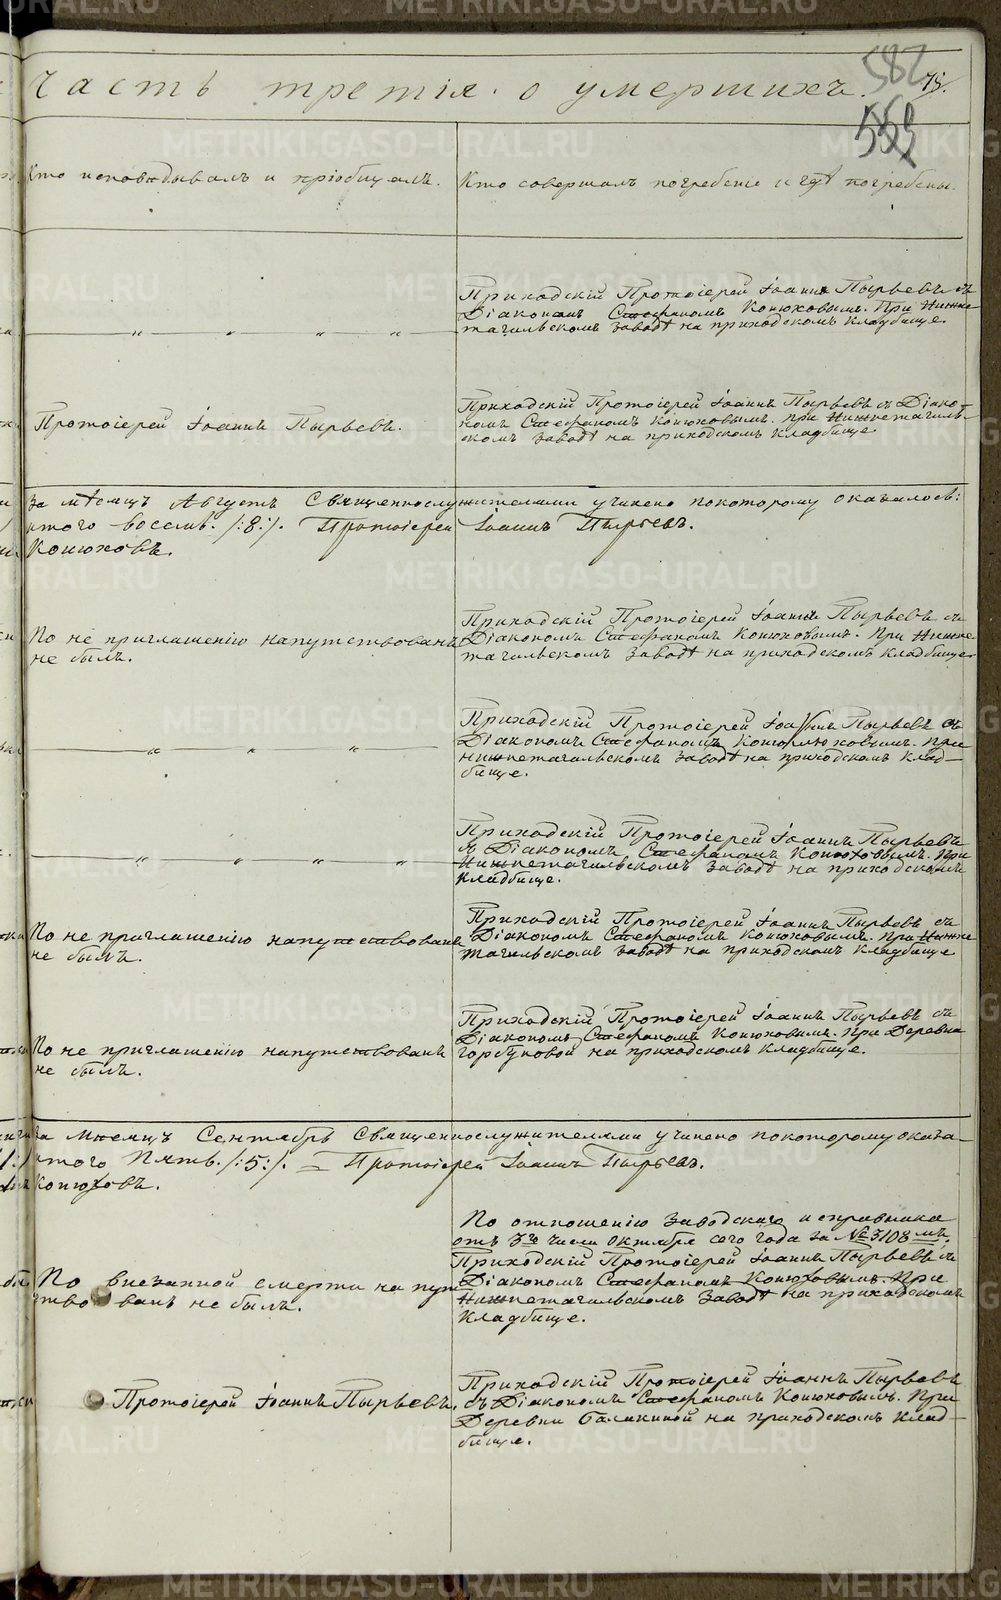 582
75.
559
Часть третія о умершихъ.
Кто исповѣдывалъ и пріобщалъ.
Кто совершалъ погребеніе и гдѣ погребены.
Приходскій Протоіерей Іоаннъ Пырьевъ съ
Діакономъ Стефаномъ Конюховымъ. При Нижне
тагильскомъ заводѣ на приходскомъ кладбище.
Протоіерей Іоаннъ Пырьевъ.
Приходскій Протоіерей Іоаннъ Пырьевъ съ Діако-
номъ Стефаномъ Конюховымъ. при Нижнетагиль-
скомъ заводѣ на приходскомъ кладбище
За мѣсяцъ Августъ Священнослужителями учинено покоторому оказалось:
итого восемь. /:8:/. Протоіерей Іоаннъ Пырьевъ.
Конюховъ.
По не приглашенію напутствованъ
не былъ.
Приходскій Протоіерей Іоаннъ Пырьевъ съ
Діакономъ Стефаномъ Конюховымъ. При Нижне
тагильскомъ заводѣ на приходскомъ кладбище
Приходскій Протоіерей Іоаннъ Пырьевъ съ
Діакономъ Стефаномъ При
Нижнетагильскомъ заводѣ на приходскомъ клад-
бище.
Приходскій Протоіерей Іоаннъ Пырьевъ
съ Діакономъ Стефаномъ Конюховымъ. При
Нижнетагильскомъ заводѣ на приходскомъ
кладбище.
По не приглашенію напутствованъ
не былъ.
Приходскій Протоіерей Іоаннъ Пырьевъ съ
Діакономъ Стефаномъ Конюховымъ. При Нижне
тагильскомъ заводѣ на приходскомъ кладбище
По не приглашенію напутствованъ
не былъ.
Приходскій Протоіерей Іоаннъ Пырьевъ съ
Діакономъ Стефаномъ Конюховымъ. При Деревни
Горбуновой на приходскомъ кладбище.
За мѣсяцъ Сентябрь Священнослужителями учинено покоторому оказа-
итого Пять. /:5:/. = Протоіерей Іоаннъ Пырьевъ.
Конюховъ.
По внезапной смерти напут
ствованъ не былъ.
По отношенію заводскаго исправника
отъ 3го числа октября сего года за № 3108мъ.
Приходскій Протоіерей Іоаннъ Пырьевъ съ
Діакономъ Стефаномъ Конюховымъ. При
Нижнетагильскомъ заводѣ на приходскомъ
кладбище.
Протоіерей Іоаннъ Пырьевъ.
Приходскій Протоіерей Іоаннъ Пырьевъ
съ Діакономъ Стефаномъ Конюховымъ. При
Деревни Балакиной на приходскомъ клад-
бище.
METRIKI.GASO-URAL.RU